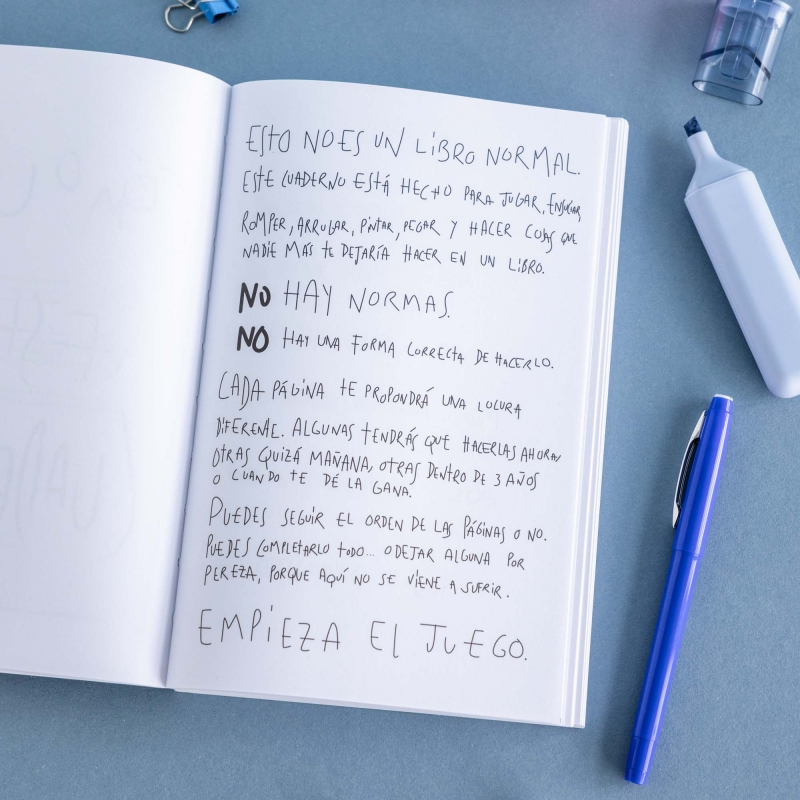 ESTO NO ES UN LIBRO NORMAL.
ESTE CUADERNO ESTÁ HECHO PARA JUGAR, ENSUCIAR,
ROMPER, ARRUGAR, PINTAR, PEGAR Y HACER COSAS QUE
NADIE MÁS TE DEJARÍA HACER EN UN LIBRO.
NO HAY NORMAS.
NO HAY UNA FORMA CORRECTA DE HACERLO.
CADA PÁGINA TE PROPONDRÁ UNA LOCURA
DIFERENTE. ALGUNAS TENDRÁS QUE HACERLAS AHORA,
OTRAS QUIZÁ MAÑANA, OTRAS DENTRO DE 3 AÑOS
O CUANDO TE DÉ LA GANA.
PUEDES SEGUIR EL ORDEN DE LAS PÁGINAS O NO.
PUEDES COMPLETARLO TODO... O DEJAR ALGUNA POR
PEREZA, PORQUE AQUÍ NO SE VIENE A SUFRIR.
EMPIEZA EL JUEGO.